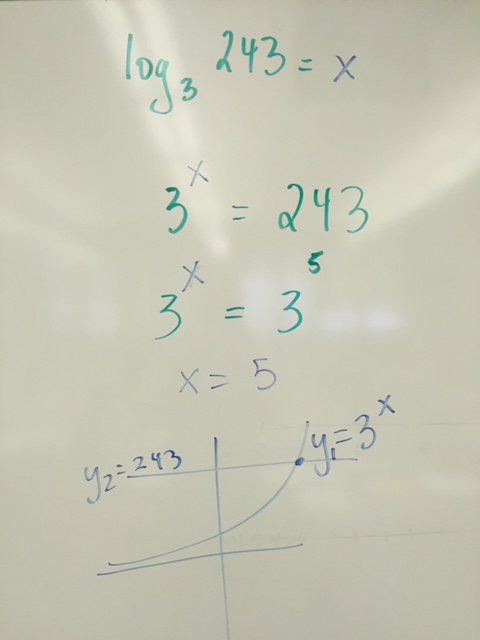 log₃ 243 = x
3ˣ = 243
3ˣ = 3⁵
x = 5
y₂ = 243
y₁ = 3ˣ